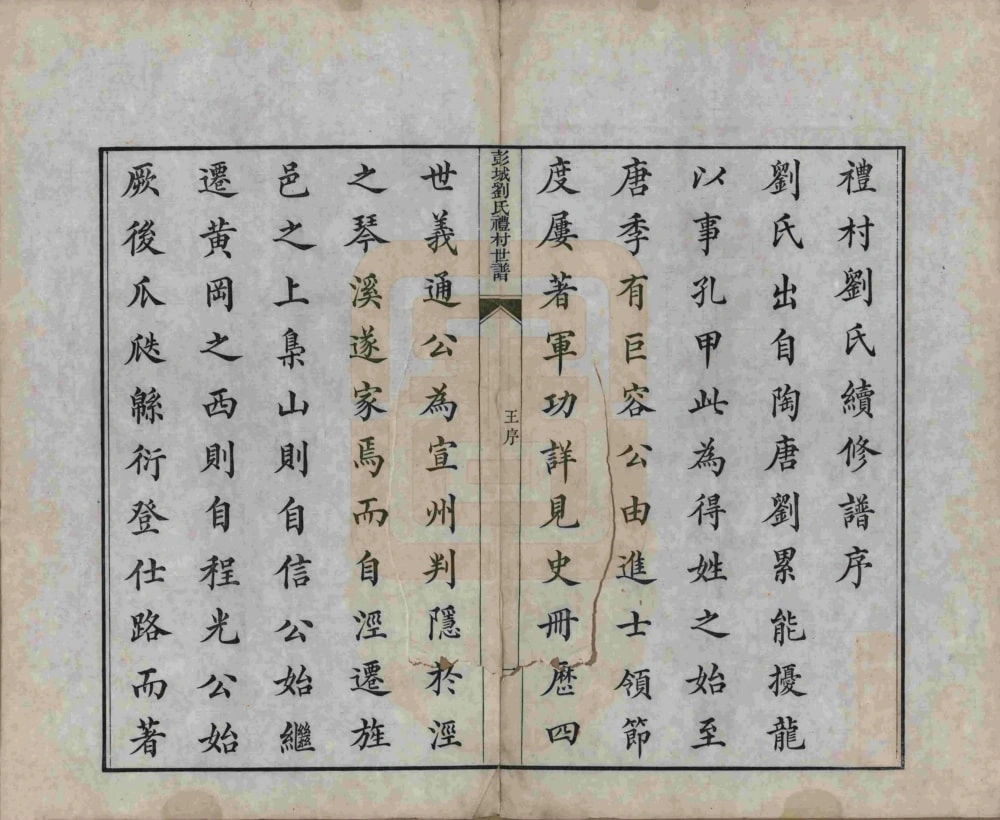 禮村劉氏續修譜序
劉氏出自陶唐劉累能擾龍
以事孔甲此為得姓之始至
唐季有巨容公由進士領節
度屢著軍功詳見史冊歷四
彭城劉氏禮村世譜
王序
一
世義通公為宣州判隱於涇
之琴溪遂家焉而自涇遷旌
邑之上梟山則自信公始繼
遷黃岡之西則自程光公始
厥後瓜瓞緜衍登仕路而著